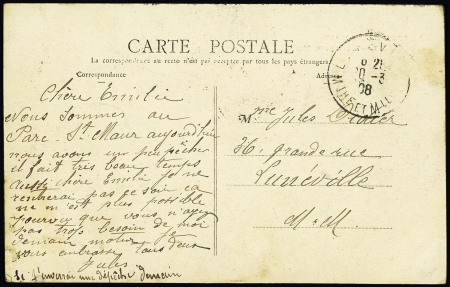 CARTE POSTALE
La correspondance au recto n'est pas acceptée par tous les pays étrangers
Correspondance
Adresse
Chère Emilie
Nous sommes au
Parc St Maur aujourd'hui
nous avons un peu pêché
il fait très beau temps
aussi chère Emilie je ne
rentrerai pas ce soir ça
ne m'est plus possible
pourvu que vous n'ayez
pas trop besoin de moi
demain matin je
vous embrasse tous deux
Jules
je t'enverrai une dépêche demain
M. me Jules Didier
36, grande rue
Luneville
M-M.
8 2
0-3
08
MEURTHE ET M